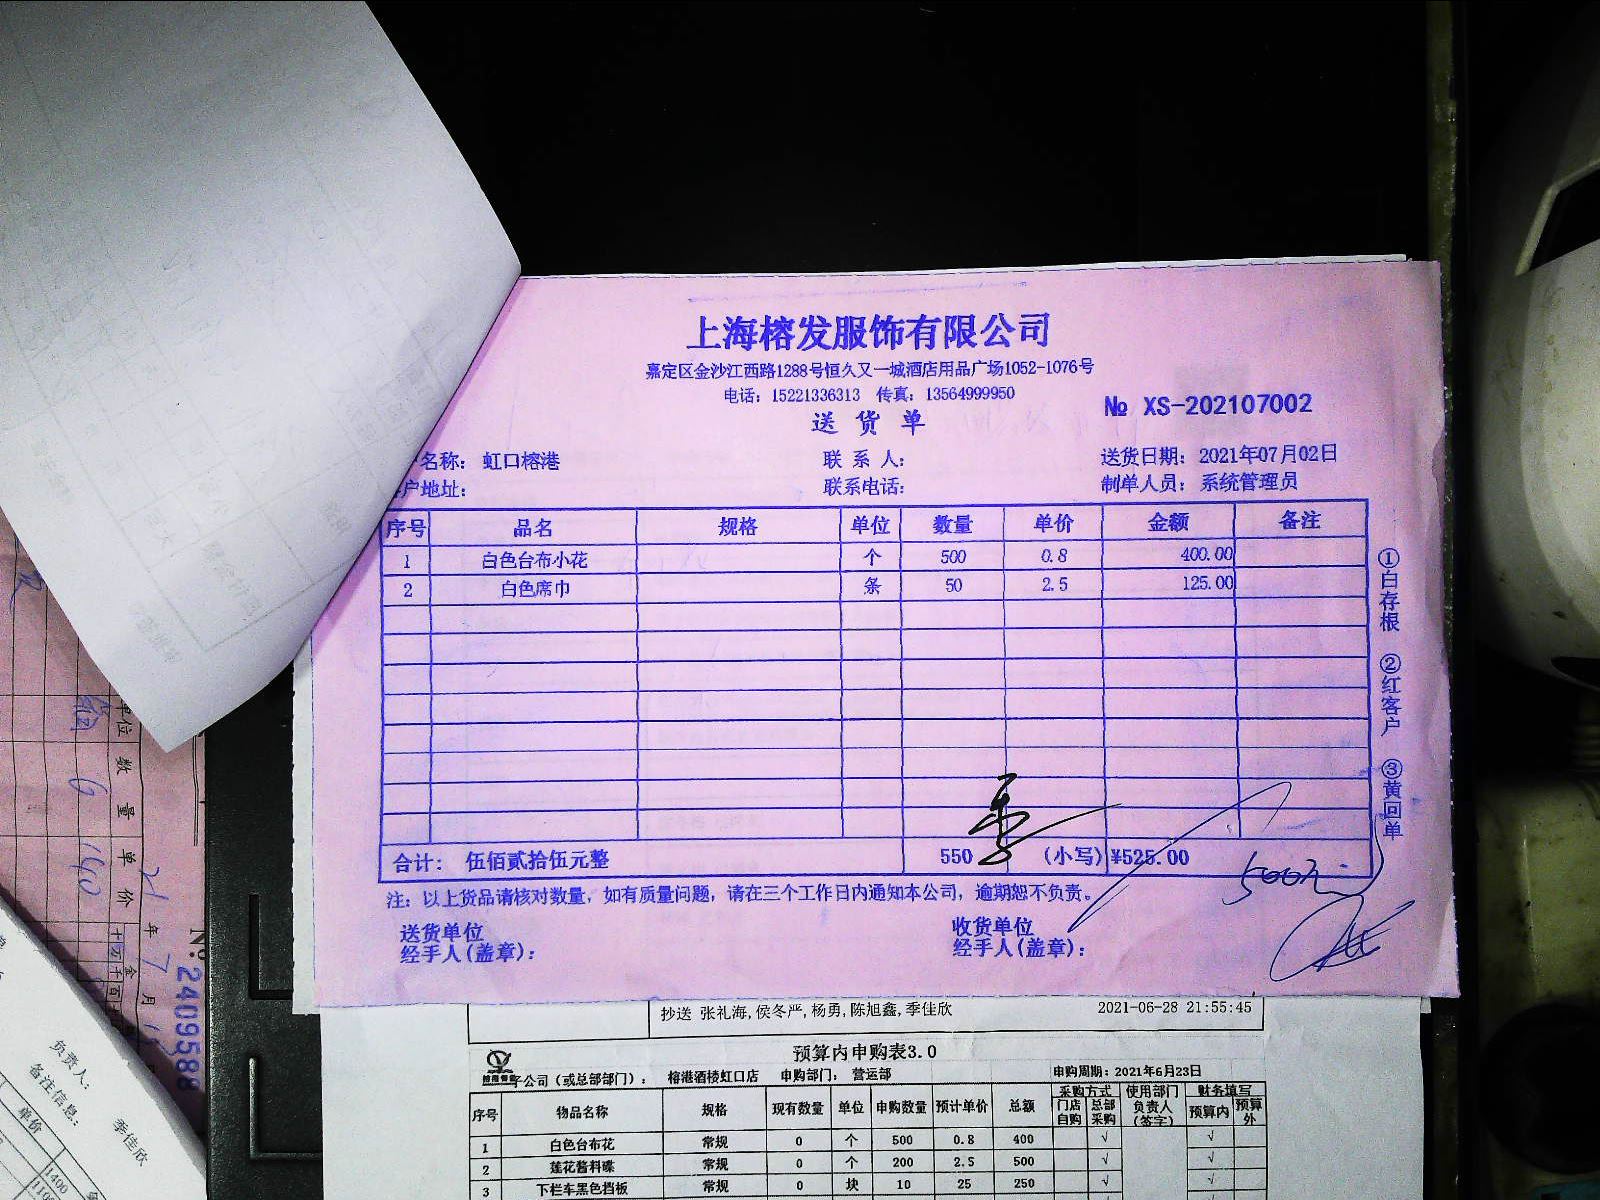 上海榕发服饰有限公司
嘉定区金沙江西路1288号恒久又一城酒店用品广场1052-1076号
电话：15221336313 传真：13564999950
送货单
№ XS-202107002
名称：虹口榕港 联系人： 送货日期：2021年07月02日
户地址： 联系电话： 制单人员：系统管理员
序号 品名 规格 单位 数量 单价 金额 备注
1 白色台布小花 个 500 0.8 400.00
2 白色席巾 条 50 2.5 125.00
合计：伍佰贰拾伍元整 550 (小写)¥525.00
注：以上货品请核对数量，如有质量问题，请在三个工作日内通知本公司，逾期恕不负责。
送货单位 收货单位
经手人(盖章)： 经手人(盖章)：
①白存根 ②红客户 ③黄回单
500元
抄送 张礼海,侯冬严,杨勇,陈旭鑫,季佳欣 2021-06-28 21:55:45
预算内申购表3.0
子公司（或总部部门）： 榕港酒楼虹口店 申购部门： 营运部 申购周期：2021年6月23日
序号 物品名称 规格 现有数量 单位 申购数量 预计单价 总额 采购方式 门店自购 总部采购 使用部门负责人（签字） 财务填写 预算内 预算外
1 白色台布花 常规 0 个 500 0.8 400 √ √
2 莲花酱料碟 常规 0 个 200 2.5 500 √ √
3 下栏车黑色挡板 常规 0 块 10 25 250 √ √
单位 数量 单价
6 140
21年7月
№ 2409588
负责人：
备注信息： 季佳欣
单价
1400